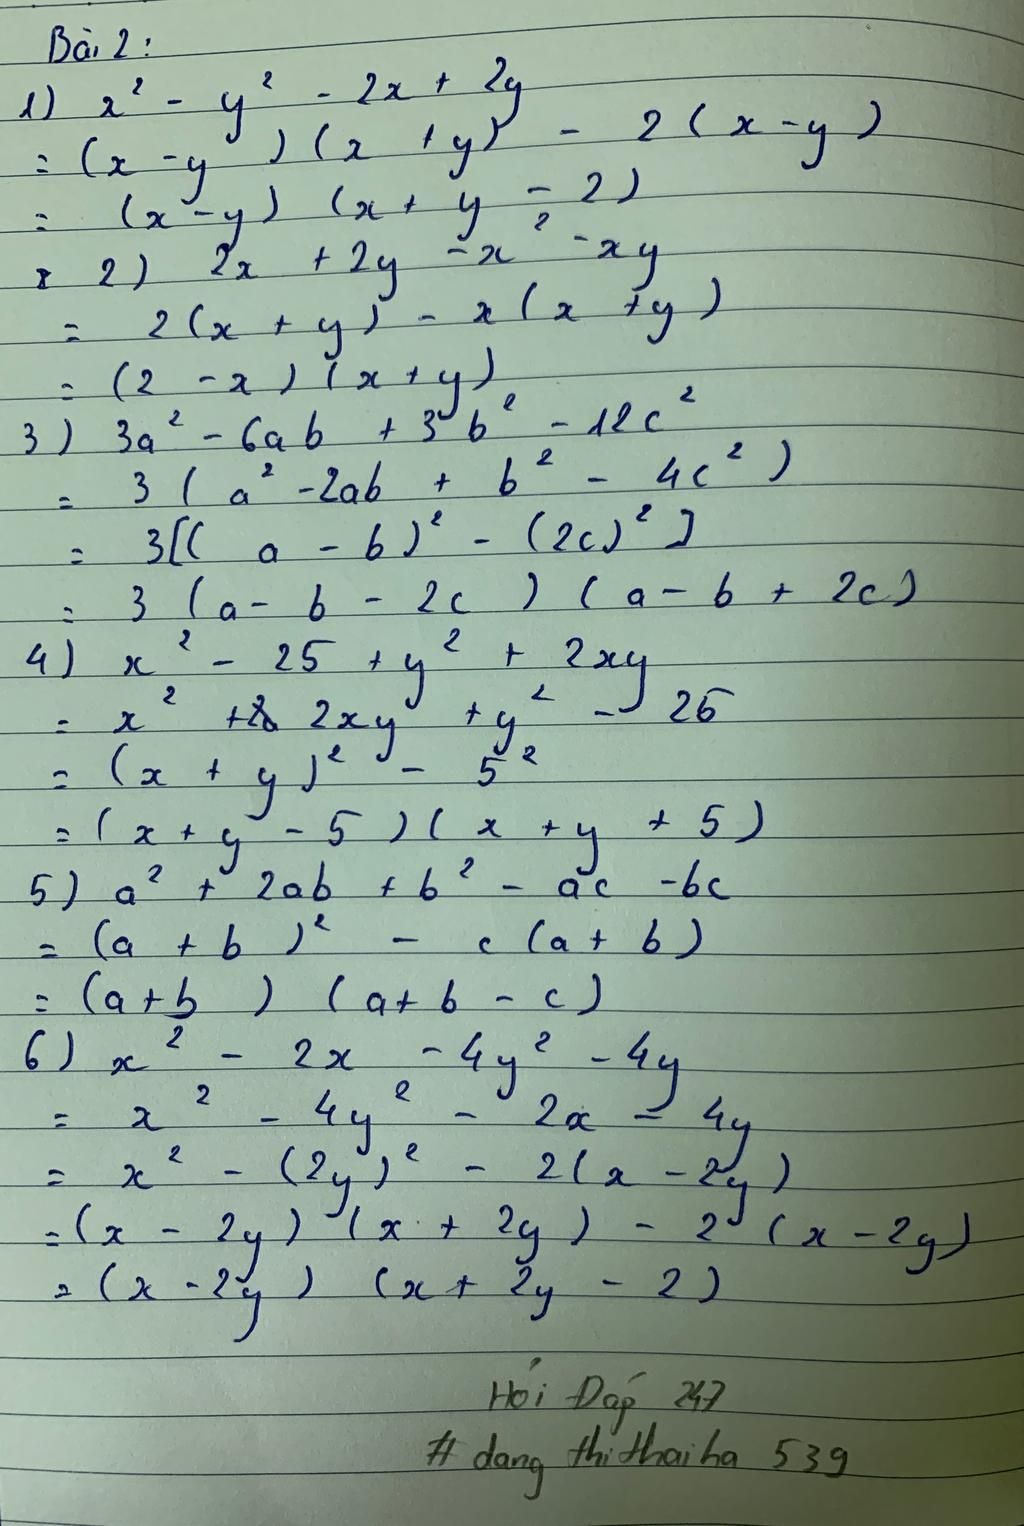 Bài 2:
1) x² - y² - 2x + 2y
= (x - y) (x + y) - 2 (x - y)
= (x - y) (x + y - 2)
2) 2x + 2y - x² - xy
= 2(x + y) - x (x + y)
= (2 - x) (x + y)
3) 3a² - 6ab + 3b² - 12c²
= 3 (a² - 2ab + b² - 4c²)
= 3[(a - b)² - (2c)²]
= 3 (a - b - 2c) (a - b + 2c)
4) x² - 25 + y² + 2xy
= x² + 2xy + y² - 25
= (x + y)² - 5²
= (x + y - 5) (x + y + 5)
5) a² + 2ab + b² - ac - bc
= (a + b)² - c (a + b)
= (a + b) (a + b - c)
6) x² - 2x - 4y² - 4y
= x² - 4y² - 2x - 4y
= x² - (2y)² - 2(x - 2y)
= (x - 2y) (x + 2y) - 2 (x - 2y)
= (x - 2y) (x + 2y - 2)
Hỏi Đáp 247
# dang thithaiha 539